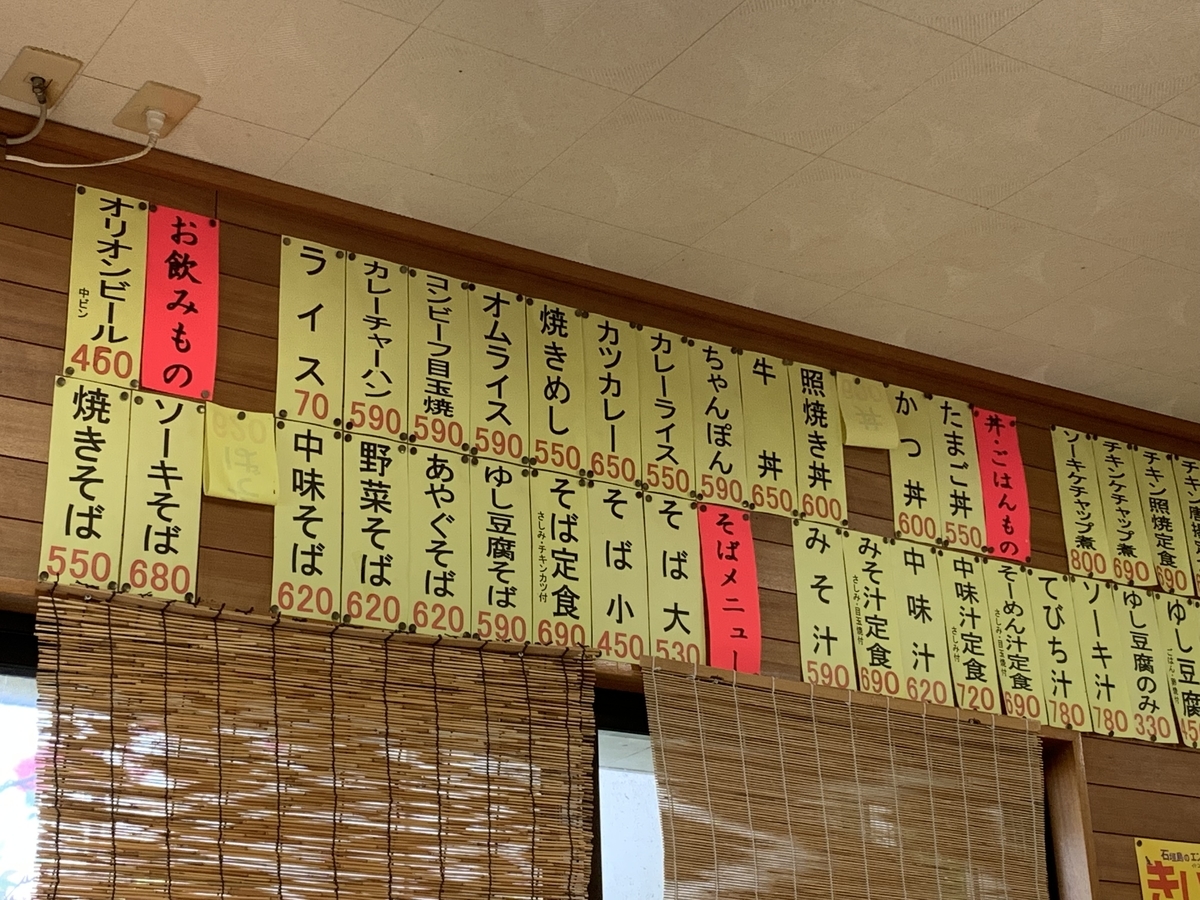 お飲みもの
オリオンビール 中ビン 460
ソーキそば 680
焼きそば 550
丼・ごはんもの
たまご丼 550
かつ丼 600
照焼き丼 600
牛丼 650
ちゃんぽん 590
カレーライス 550
カツカレー 650
焼きめし 550
オムライス 590
コンビーフ目玉焼 590
カレーチャーハン 590
ライス 70
そばメニュー
そば大 530
そば小 450
そば定食 さしみ・チキンカツ付 690
ゆし豆腐そば 590
あやぐそば 620
野菜そば 620
中味そば 620
チキン照焼定食 690
チキンケチャップ煮 690
ソーキケチャップ煮 800
ゆし豆腐
ゆし豆腐のみ 330
ソーキ汁 780
てびち汁 780
そーめん汁定食 さしみ・目玉焼付 690
中味汁定食 さしみ付 720
中味汁 620
みそ汁定食 さしみ・目玉焼付 690
みそ汁 590
石垣島のエン